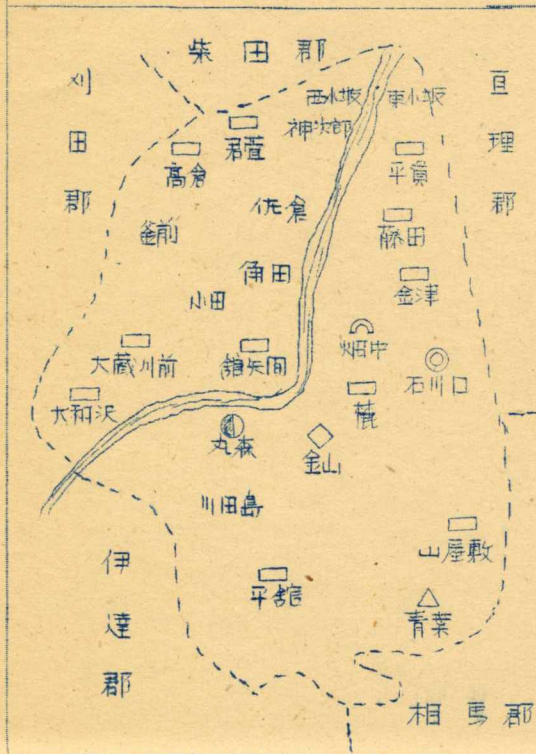 柴田郡
刈田郡
亘理郡
西小坂
東小坂
神次郎
君萱
高倉
平貫
佐倉
藤田
釜前
角田
金津
小田
畑中
大蔵川前
舘矢間
石川口
大和沢
丸森
金山
川田島
山屋敷
伊達郡
平舘
青葉
相馬郡